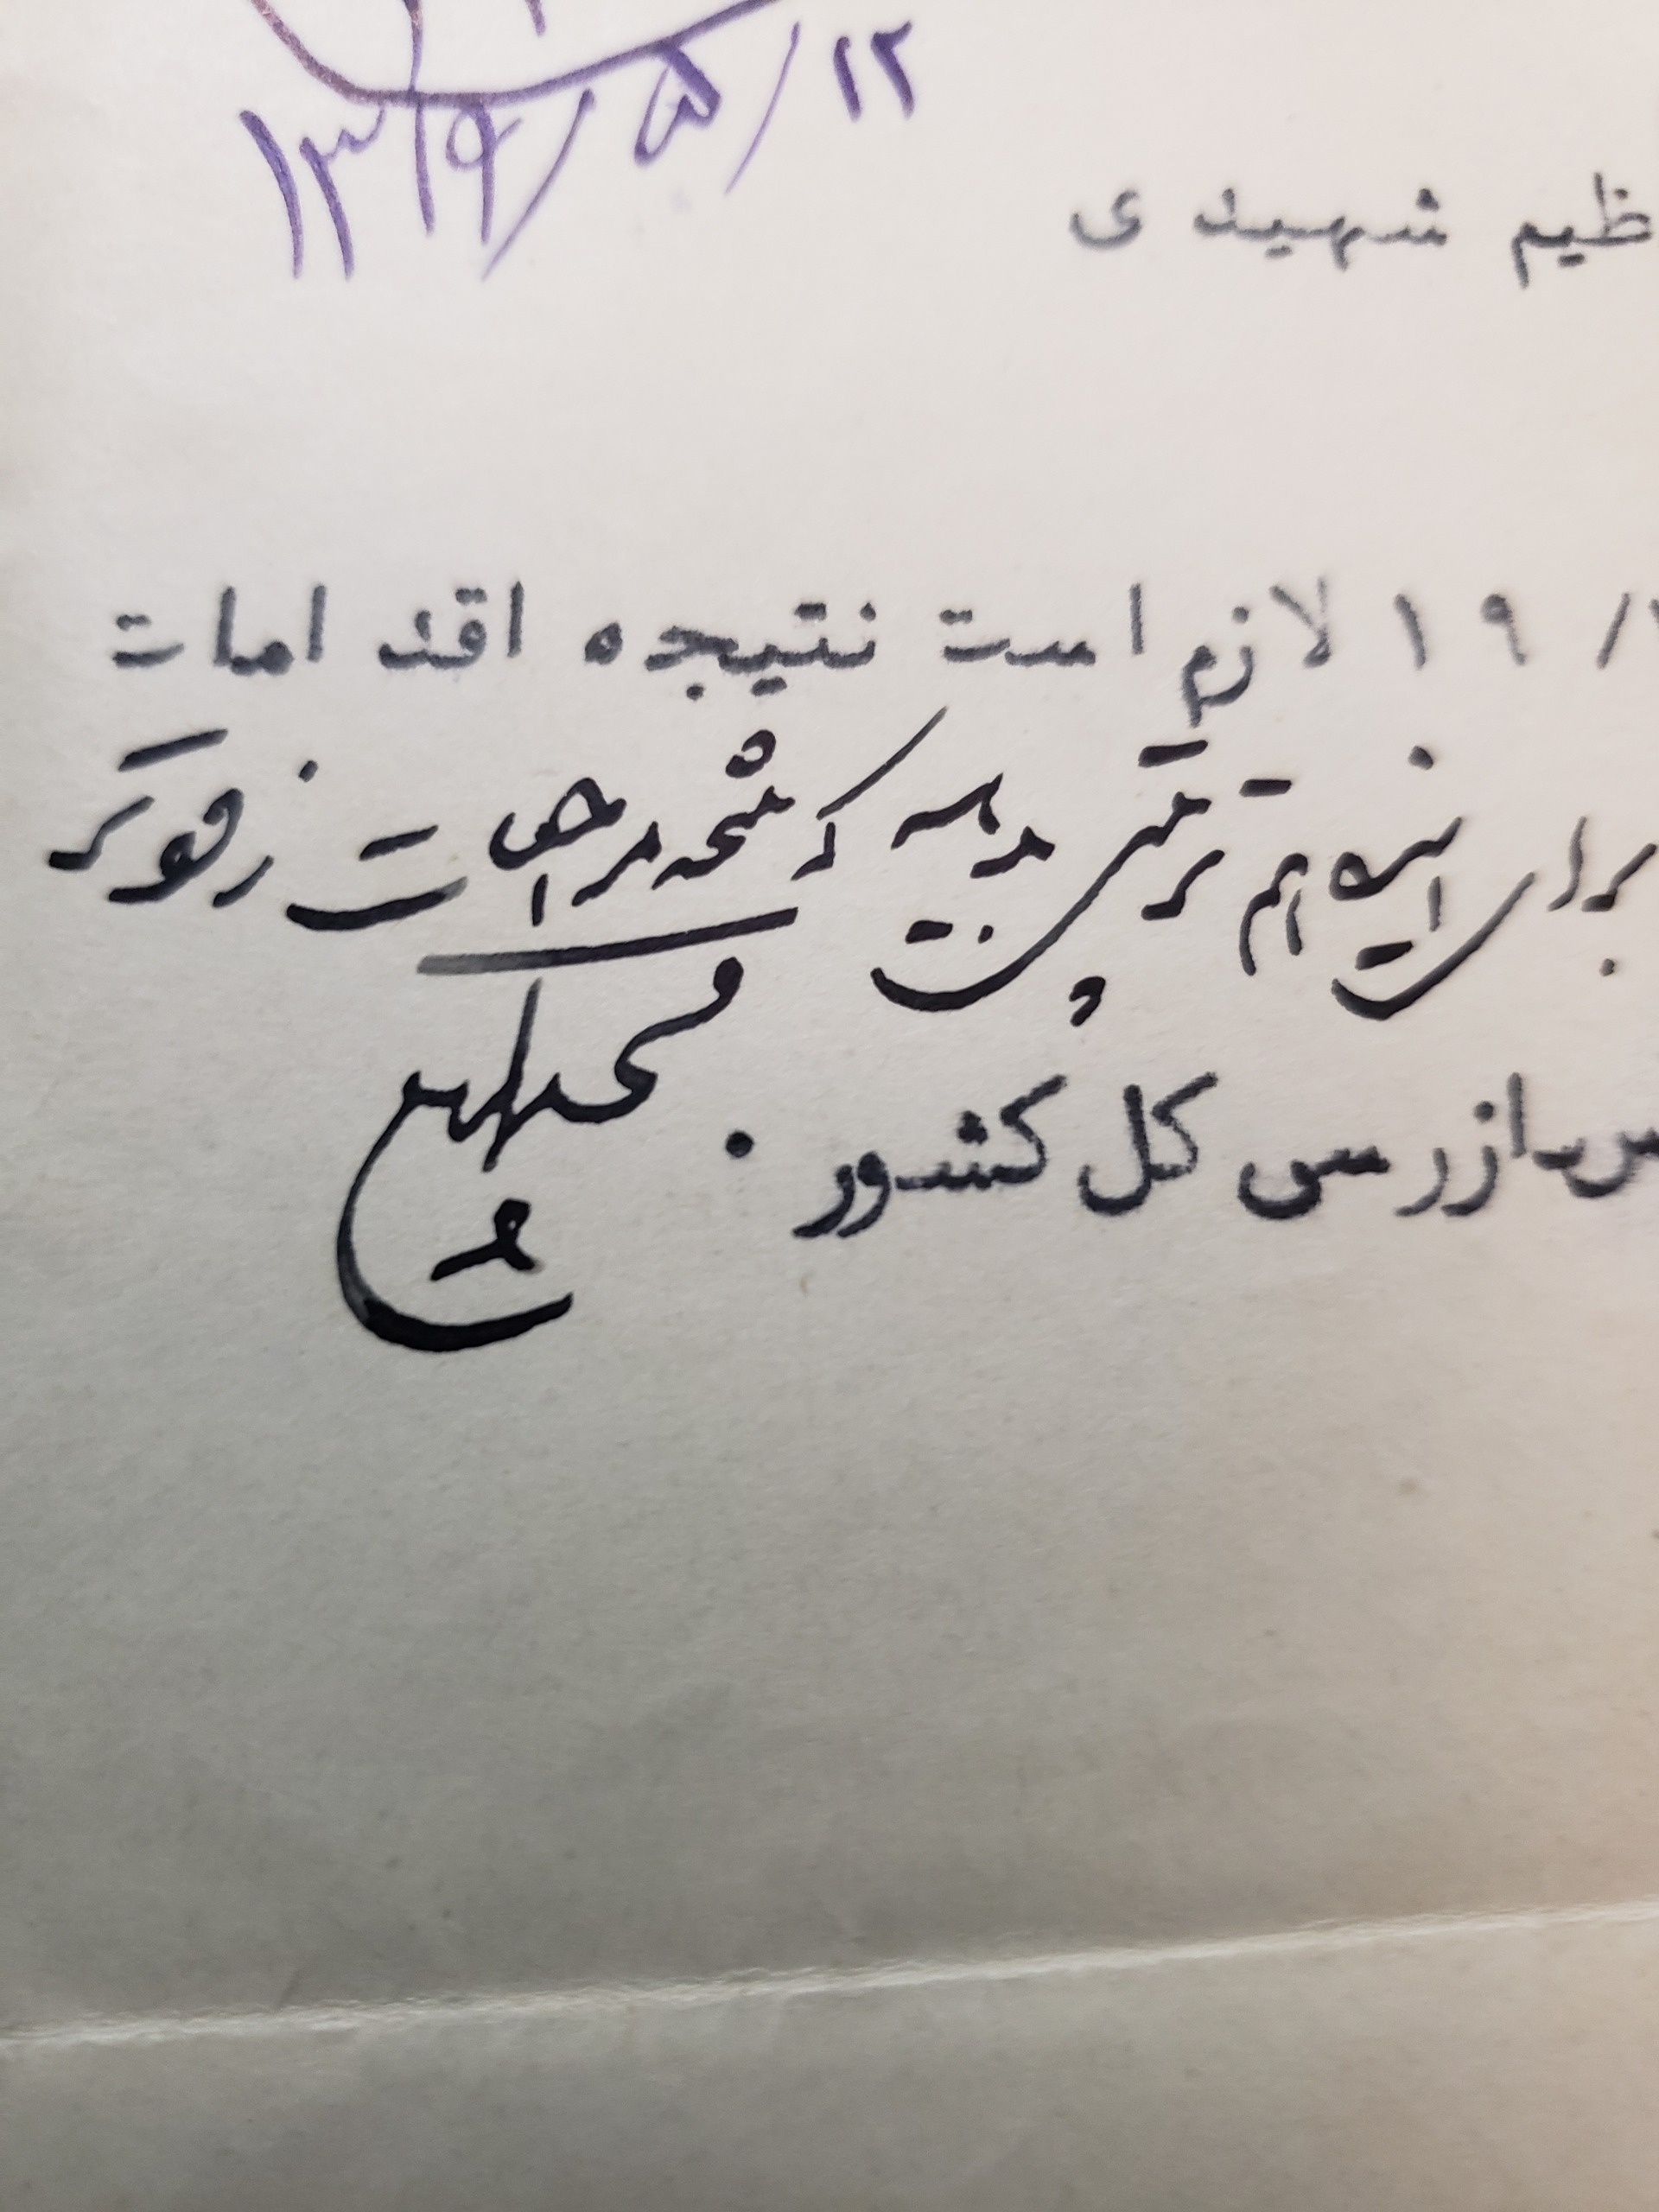 ۱۳۱۹/۵/۱۲
ظیم شهیدی
/۱۹ لازم است نتیجه اقدامات
برای آتیه هم ترتیبی بدهید که نتیجه مراجعات زودتر
بازرسی کل کشور.